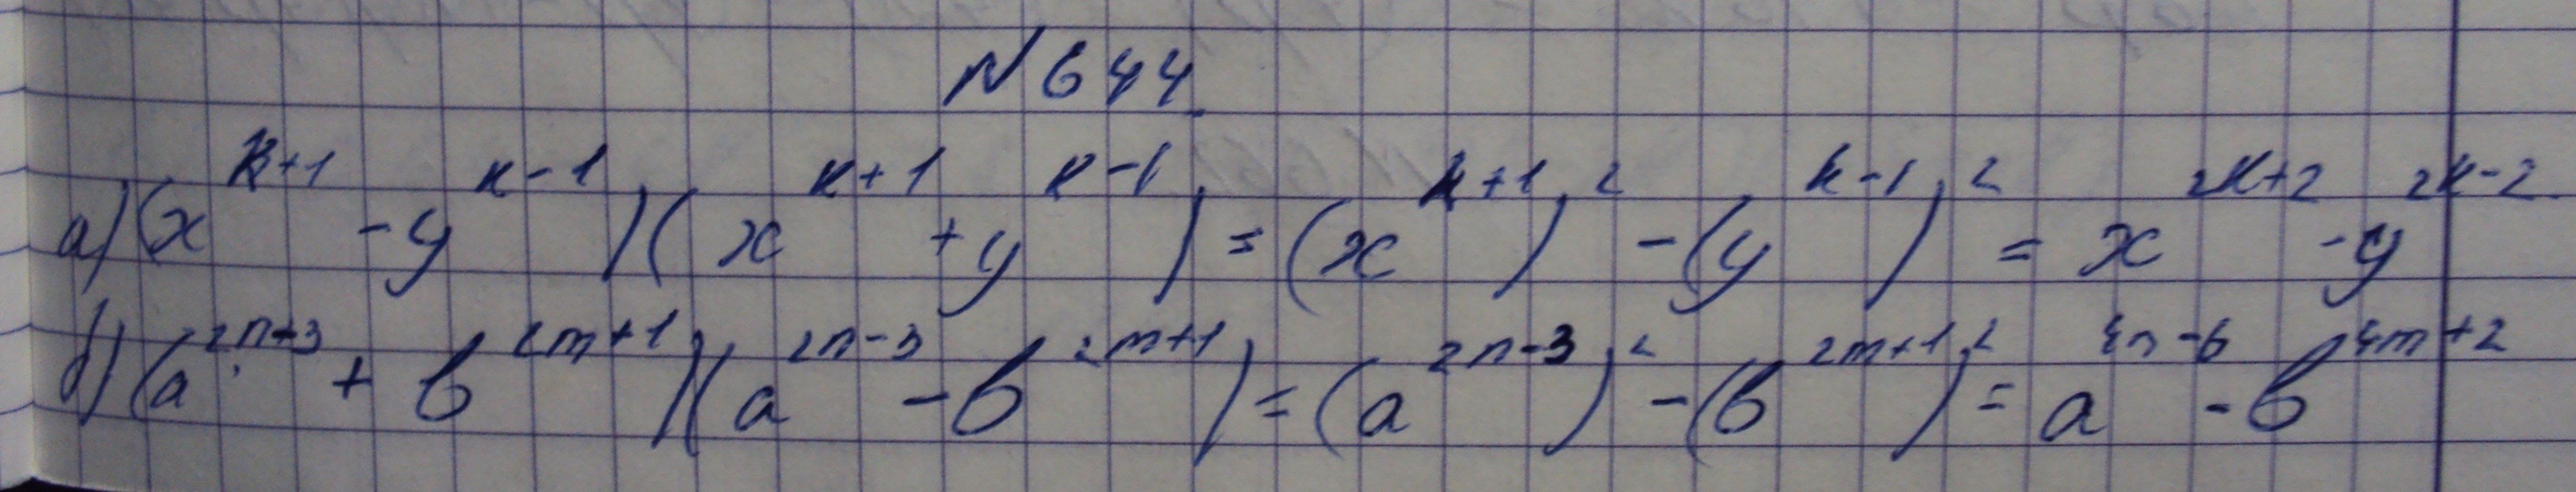 N 644
а) (x^{k+1} - y^{k-1})(x^{k+1} + y^{k-1}) = (x^{k+1})^2 - (y^{k-1})^2 = x^{2k+2} - y^{2k-2}
б) (a^{2n-3} + b^{2m+1})(a^{2n-3} - b^{2m+1}) = (a^{2n-3})^2 - (b^{2m+1})^2 = a^{4n-6} - b^{4m+2}